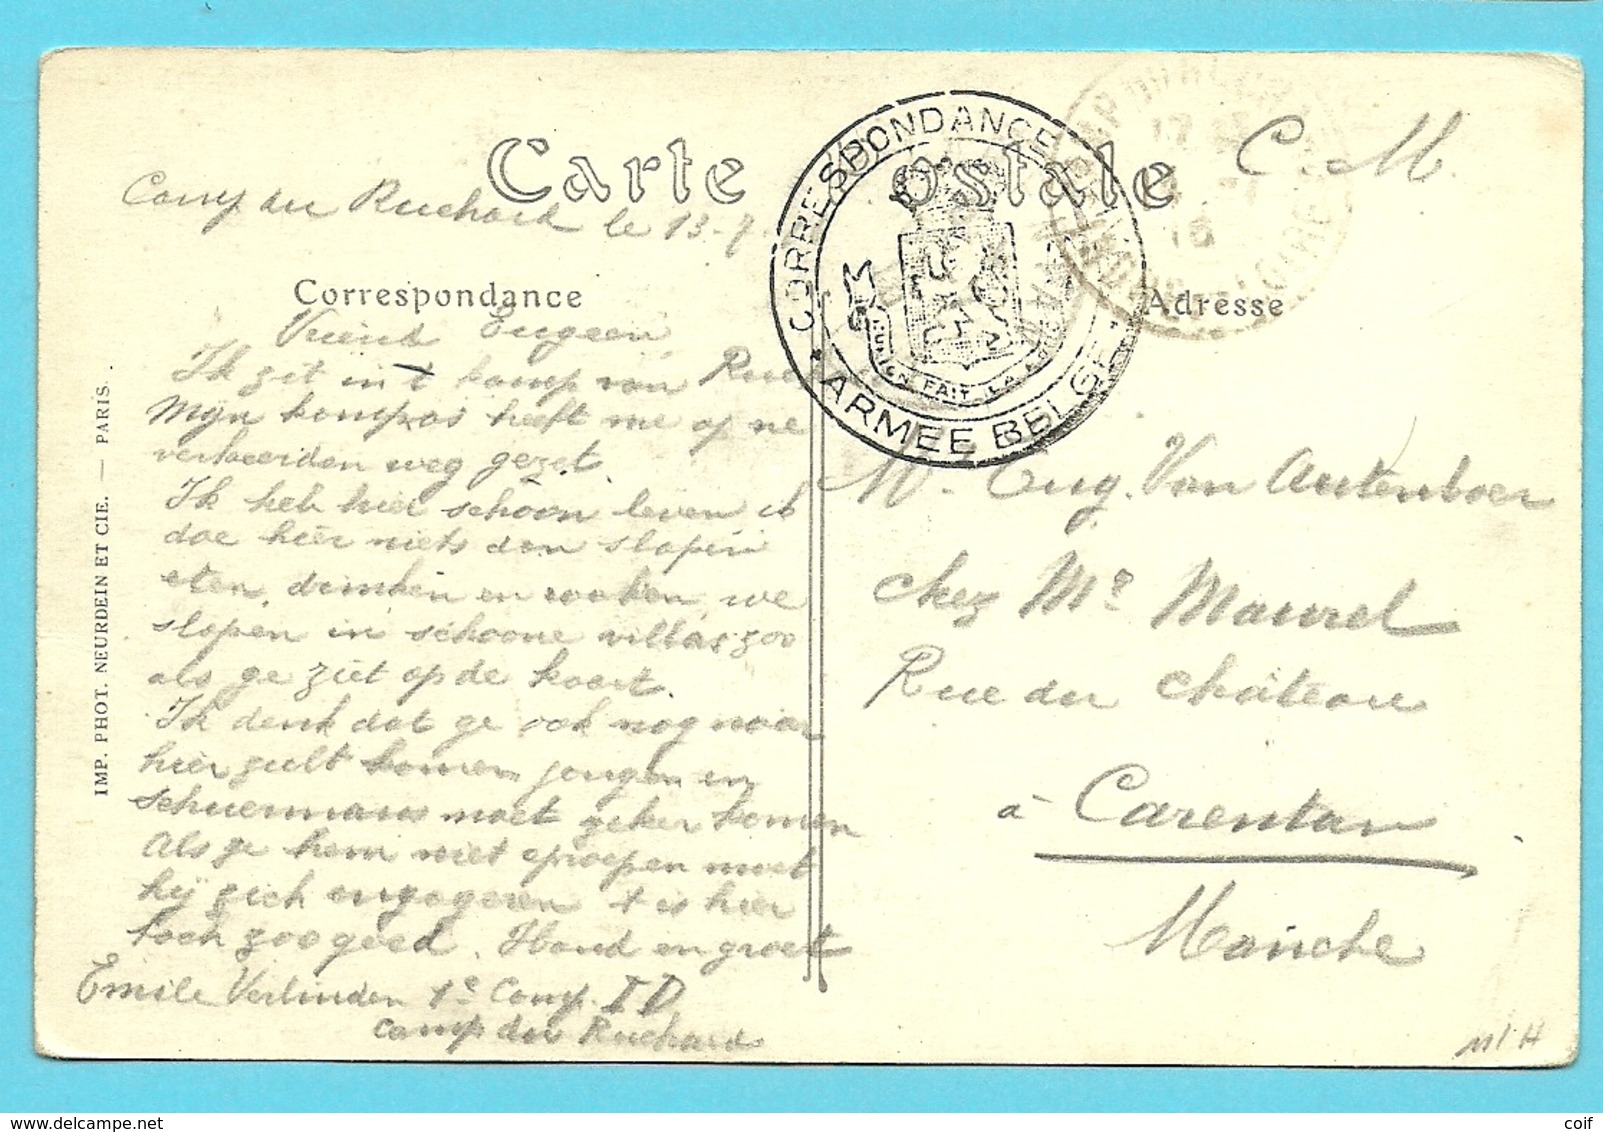 Carte Postale
C. M.
Camp du Ruchard le 13-7-
CORRESPONDANCE
* ARMÉE BELGE *
L'UNION FAIT LA
Correspondance
Adresse
Vriend Eugeen
Ik zit in 't kamp van Ruc
Mijn kompas heeft me op ne
verkeerden weg gezet.
Ik heb hier schoon leven ik
doe hier niets dan slapen
eten, drinken en rooken, we
slapen in schoone villas zoo
als ge ziet op de kaart.
Ik denk dat ge ook nog naar
hier zult komen jongen en
schuermans moet zeker komen
Als ge hem niet oproepen moet
hij zich engageeren 't is hier
toch zoo goed. Hand en groet
Emile Verlinden 1e Comp. ID
camp du Ruchard
Mr. Eug. Van Autenboer
chez Mr Maurel
Rue du Château
à Carentan
Manche
IMP. PHOT. NEURDEIN ET CIE. — PARIS.
111 H
coif